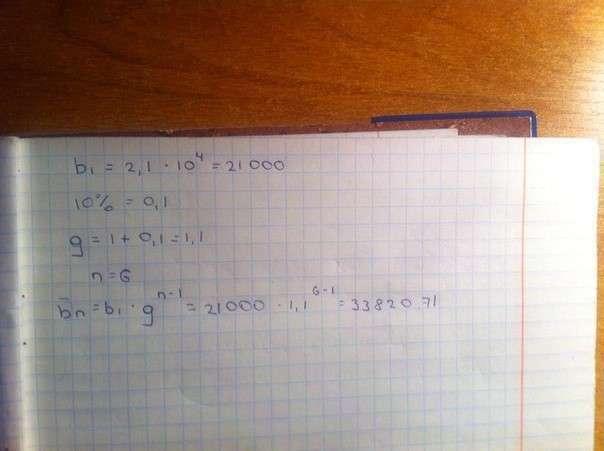 b₁ = 2,1 · 10⁴ = 21000
10% = 0,1
g = 1 + 0,1 = 1,1
n = 6
bn = b₁ · gⁿ⁻¹ = 21000 · 1,1⁶⁻¹ = 33820.71